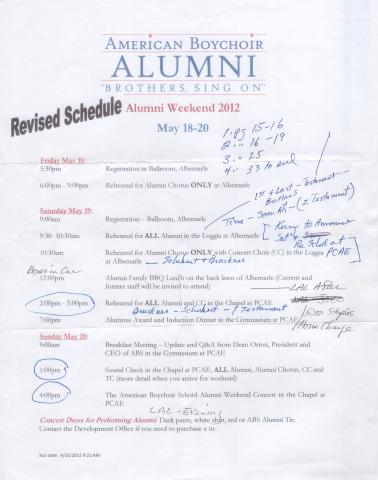 AMERICAN BOYCHOIR
ALUMNI
"BROTHERS, SING ON"
Revised Schedule
Alumni Weekend 2012
May 18-20
1. pg 15-16
2. " 16-19
3. " 25
4. " 33 to end
Friday May 18:
5:30pm Registration in Ballroom, Albemarle
6:00pm - 9:00pm Rehearsal for Alumni Chorus ONLY at Albemarle
1st + Last - Testament
Brothers
Time - Soon Ah - (2 Testament)
Saturday May 19:
9:00am Registration – Ballroom, Albemarle
Kerry to Announce
9:30- 10:30am Rehearsal for ALL Alumni in the Loggia at Albemarle
Sat
Re Sched at
PCAE
10:30am Rehearsal for Alumni Chorus ONLY with Concert Choir (CC) in the Loggia
at Albemarle - Schubert + Bruckner
Boys in Car
12:00pm Alumni Family BBQ Lunch on the back lawn of Albemarle (Current and
former staff will be invited to attend)
LAL After
2:00pm - 5:00pm Rehearsal for ALL Alumni and CC in the Chapel at PCAE
Bruckner - Schubert - 1 Testament
7:00pm Alumnus Award and Induction Dinner in the Gymnasium at PCAE
Phone Charge
Sunday May 20:
9:00am Breakfast Meeting – Update and Q&A from Dean Orton, President and
CEO of ABS in the Gymnasium at PCAE
1:00pm Sound Check in the Chapel at PCAE, ALL Alumni, Alumni Chorus, CC and
TC (more detail when you arrive for weekend)
4:00pm The American Boychoir School Alumni Weekend Concert in the Chapel at
PCAE
LAL - Evening
Concert Dress for Performing Alumni: Dark pants, white shirt, red or ABS Alumni Tie.
Contact the Development Office if you need to purchase a tie.
For date: 4/25/2012 9:22 AM